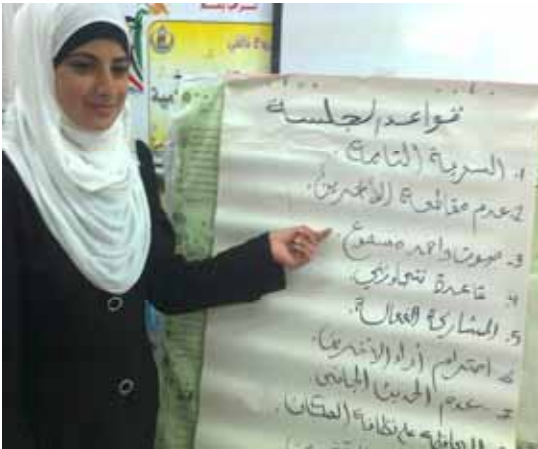 قواعد الجلسة
1. السرية التامة.
2. عدم مقاطعة الآخرين.
3. صوت واحد مسموع.
4. قاعدة تجاوزني
5. المشاركة الفعالة.
6. احترام أراء الآخرين.
7. عدم الحديث الجانبي.
على نظافة المكان.